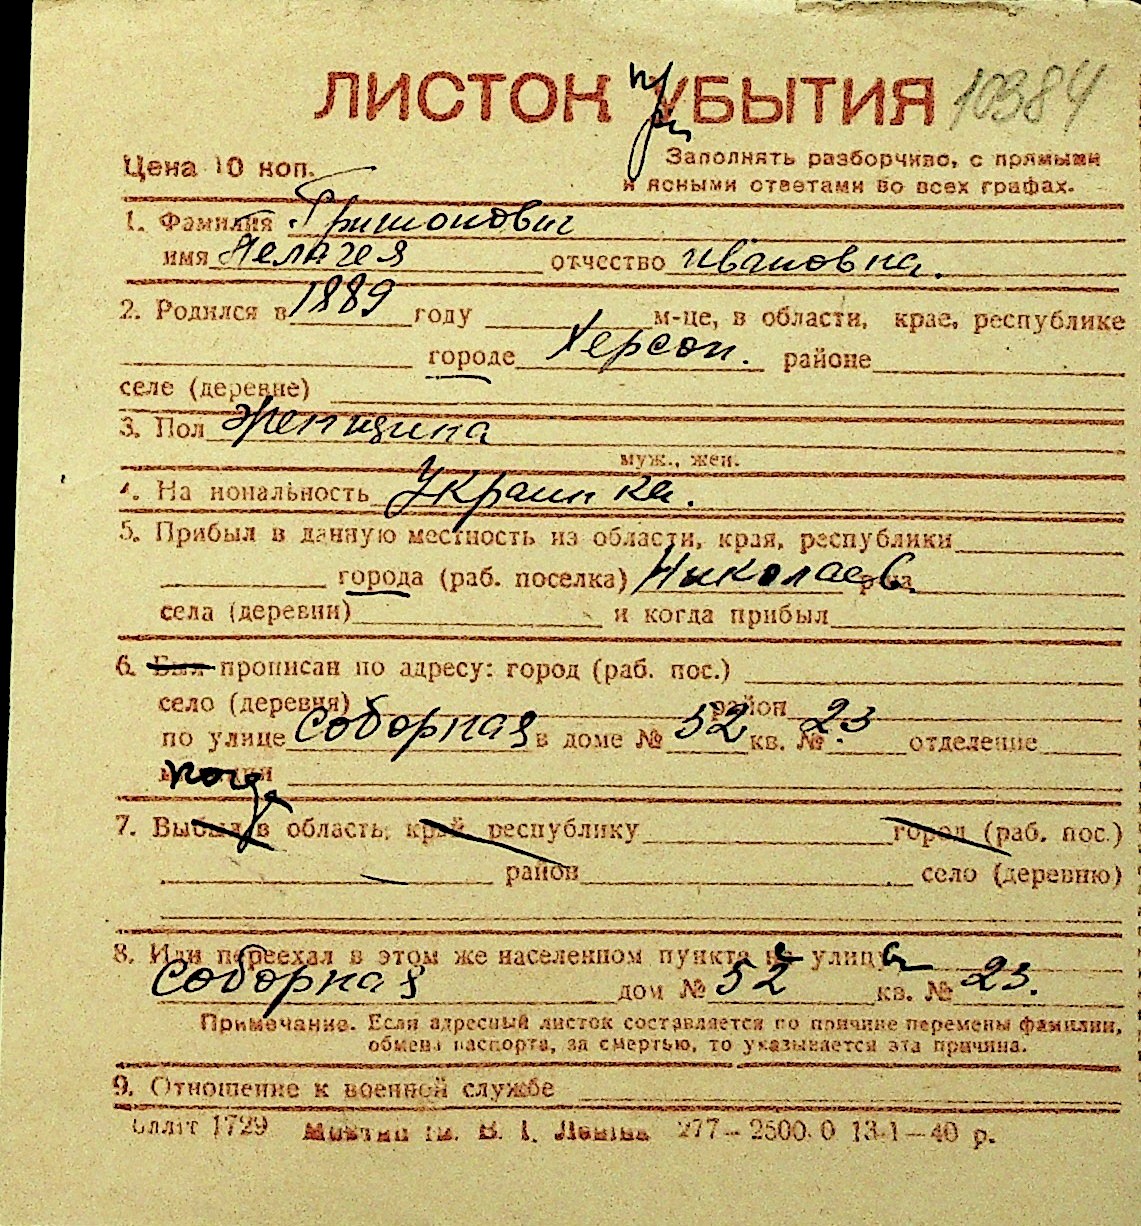 ЛИСТОК УБЫТИЯ 10384
при
Цена 10 коп.
Заполнять разборчиво, с прямыми
и ясными ответами во всех графах.
1. Фамилия Гришонович
имя Пелагея отчество Ивановна.
2. Родился в 1889 году м-це, в области, крае, республике
городе Херсон. районе
селе (деревне)
3. Пол Женщина
муж., жен.
4. На нональность Украинка.
5. Прибыл в данную местность из области, края, республики
города (раб. поселка) Николаев р-на
села (деревни) и когда прибыл
6. Был прописан по адресу: город (раб. пос.)
село (деревня) район
по улице Соборная в доме № 52 кв. № 23 отделение
7. Выбыл в область, край, республику город (раб. пос.)
район село (деревню)
8. Или переехал в этом же населенном пункте на улицу
Соборная дом № 52 кв. № 23.
Примечание. Если адресный листок составляется по причине перемены фамилии,
обмена паспорта, за смертью, то указывается эта причина.
9. Отношение к военной службе
1729 В. І. Леніна 277–2500.0 13.1–40 р.